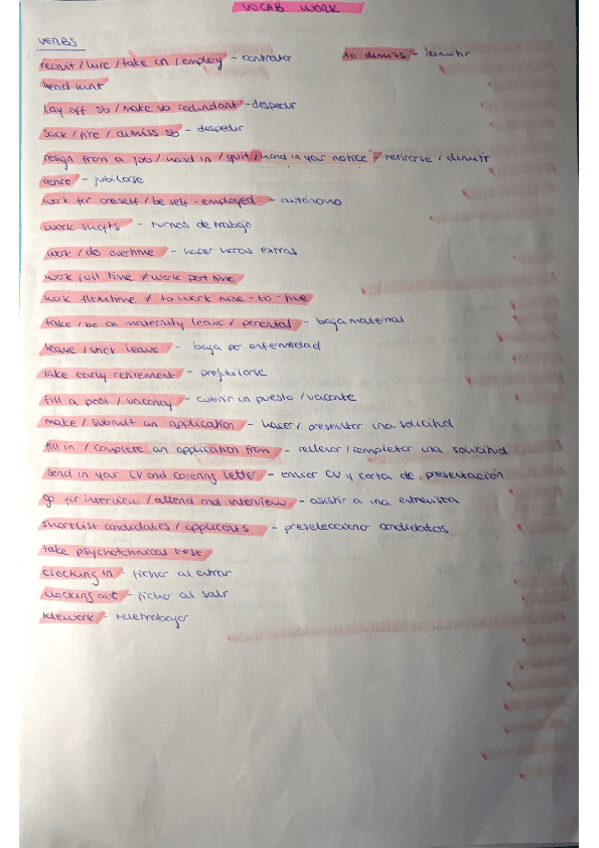 VOCAB WORK
VERBS
recruit / hire / take on / employ - contratar
to dimiss - dimitir
head hunt
lay off sb / make sb redundant - despedir
sack / fire / dimiss sb - despedir
resign from a job / hand in / quit / hand in your notice - retirarse / dimitir
retire - jubilarse
work for oneself / be self-employed - autónomo
work shifts - turnos de trabajo
work / do overtime - hacer horas extras
work full time ≠ work part time
work flexitime ≠ to work nine-to-five
take / be on maternity leave / parental - baja maternal
leave / sick leave - baja por enfermedad
take early retirement - prejubilarse
fill a post / vacancy - cubrir un puesto / vacante
make / submit an application - hacer / presentar una solicitud
fill in / complete an application from - rellenar / completar una solicitud
send in your CV and covering letter - enviar CV y carta de presentación
go for interview / attend and interview - asistir a una entrevista
shortlist candidates / applicants - preseleccionar candidatos
take psychotchnical test
clocking in - fichar al entrar
clocking out - fichar al salir
telework - teletrabajar